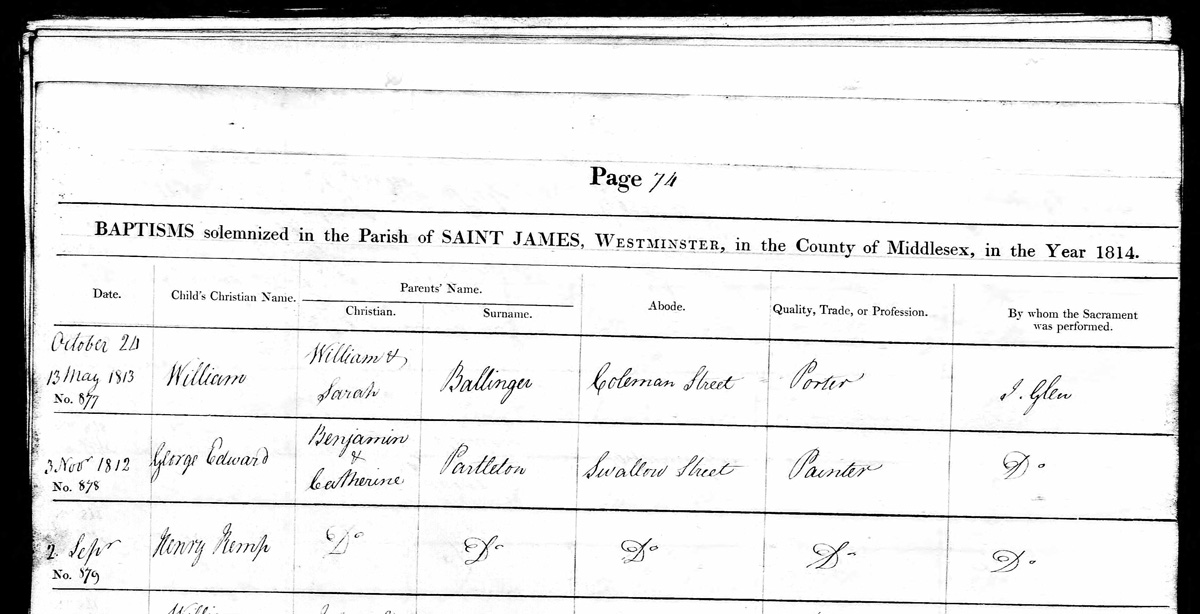 Page 74
BAPTISMS solemnized in the Parish of SAINT JAMES, WESTMINSTER, in the County of Middlesex, in the Year 1814.
Date. Child's Christian Name. Parents' Name. Abode. Quality, Trade, or Profession. By whom the Sacrament was performed.
Christian. Surname.
October 24
13 May 1813 William William & Sarah Ballinger Coleman Street Porter J. Glen
No. 877
3 Novr 1812 George Edward Benjamin & Catherine Partleton Swallow Street Painter Do
No. 878
2. Sepr Henry Kemp Do Do Do Do Do
No. 879